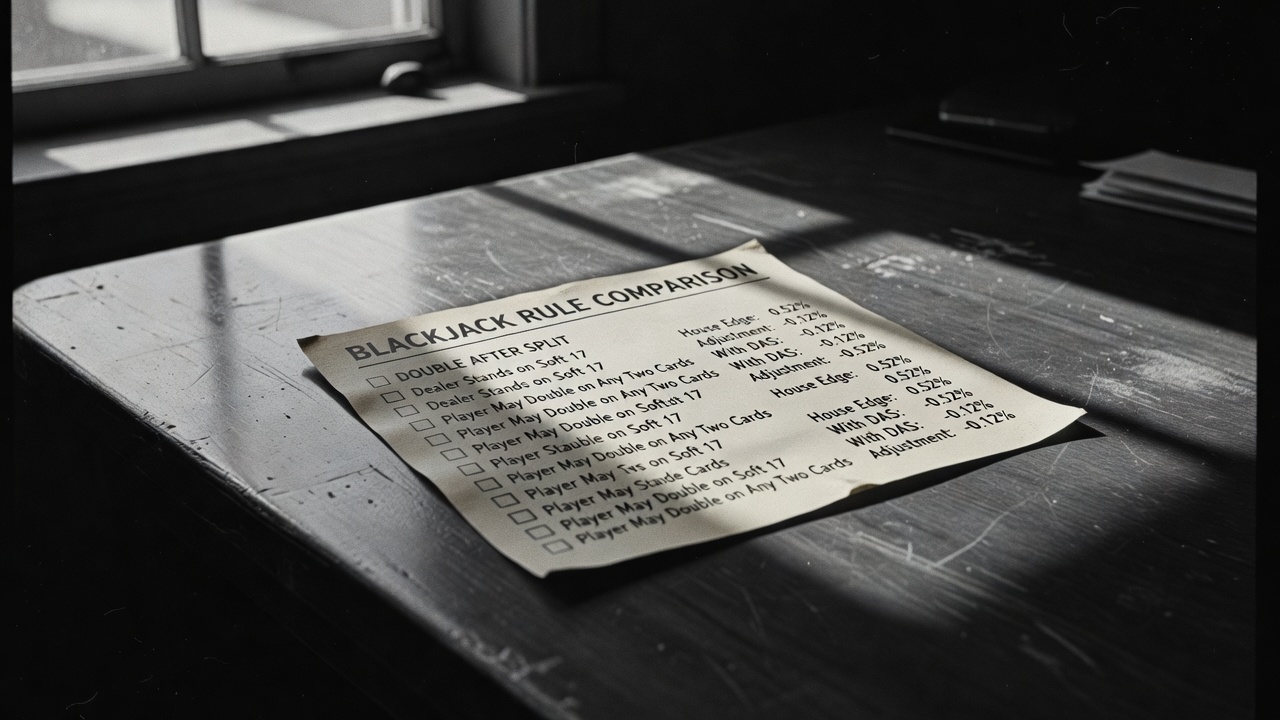 BLACKJACK RULE COMPARISON
DOUBLE AFTER SPLIT
Dealer Stands on Soft 17
Dealer Stands on Soft 17
Player May Double on Any Two Cards
Player May Double on Any Two Cards
Player May Double on 17
Player Stauble on Soft 17
Player May Double on Any Two Cards
Player May on Soft 17
Player May Cards
Player May Double on Soft 17
Player May Double on Any Two Cards
House Edge: 0.52%
Adjustment: -0.12%
With DAS: -0.12%
With DAS: -0.12%
Adjustment: -0.52%
House Edge: 0.52%
0.52%
House Edge: 0.52%
With DAS: -0.52%
With DAS: -0.12%
Adjustment: -0.12%